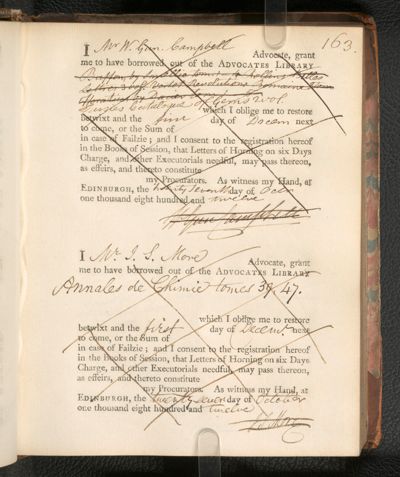 163.
I Mr W. Gun. Campbell Advocate, grant
me to have borrowed out of the ADVOCATES LIBRARY
Catalogue of Gems 2 vol.
which I oblige me to restore
betwixt and the first day of Decem next
to come, or the Sum of
in case of Failzie; and I consent to the registration hereof
in the Books of Session, that Letters of Horning on six Days
Charge, and other Executorials needful, may pass thereon,
as effeirs, and thereto constitute
my Procurators. As witness my Hand, at
EDINBURGH, the twenty seventh day of Octor
one thousand eight hundred and twelve
W Gun Campbell
I Mr J. S. More Advocate, grant
me to have borrowed out of the ADVOCATES LIBRARY
Annales de Chimie tomes 39, 47.
which I oblige me to restore
betwixt and the first day of Decemr next
to come, or the Sum of
in case of Failzie; and I consent to the registration hereof
in the Books of Session, that Letters of Horning on six Days
Charge, and other Executorials needful, may pass thereon,
as effeirs, and thereto constitute
my Procurators. As witness my Hand, at
EDINBURGH, the twenty seven day of October
one thousand eight hundred and twelve
J S More